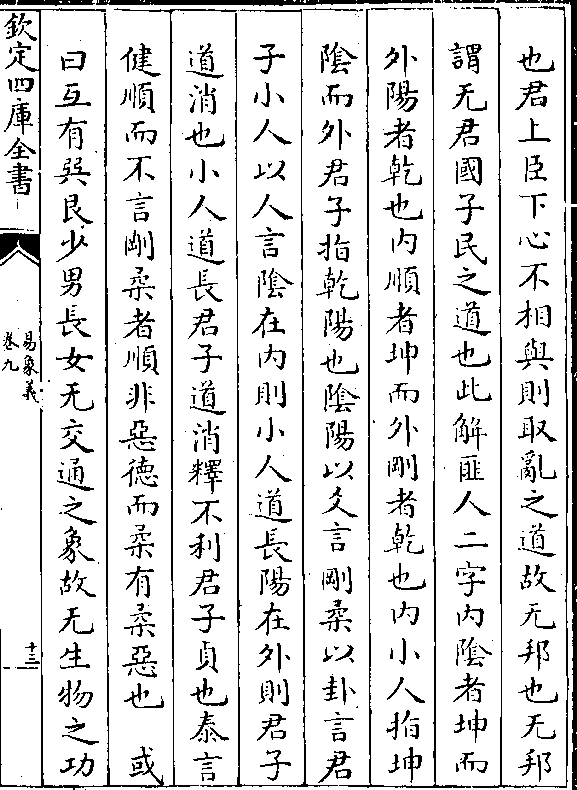 也君上臣下心不相與則取亂之道故无邦也无邦
謂无君國子民之道也此解匪人二字内陰者坤而
外陽者乾也内順者坤而外剛者乾也内小人指坤
陰而外君子指乾陽也陰陽以爻言剛柔以卦言君
子小人以人言陰在内則小人道長陽在外則君子
道消也小人道長君子道消釋不利君子貞也泰言
健順而不言剛柔者順非惡德而柔有柔惡也　或
曰互有巽艮少男長女无交通之象故无生物之功
欽定四庫全書
易象義
卷九
十三